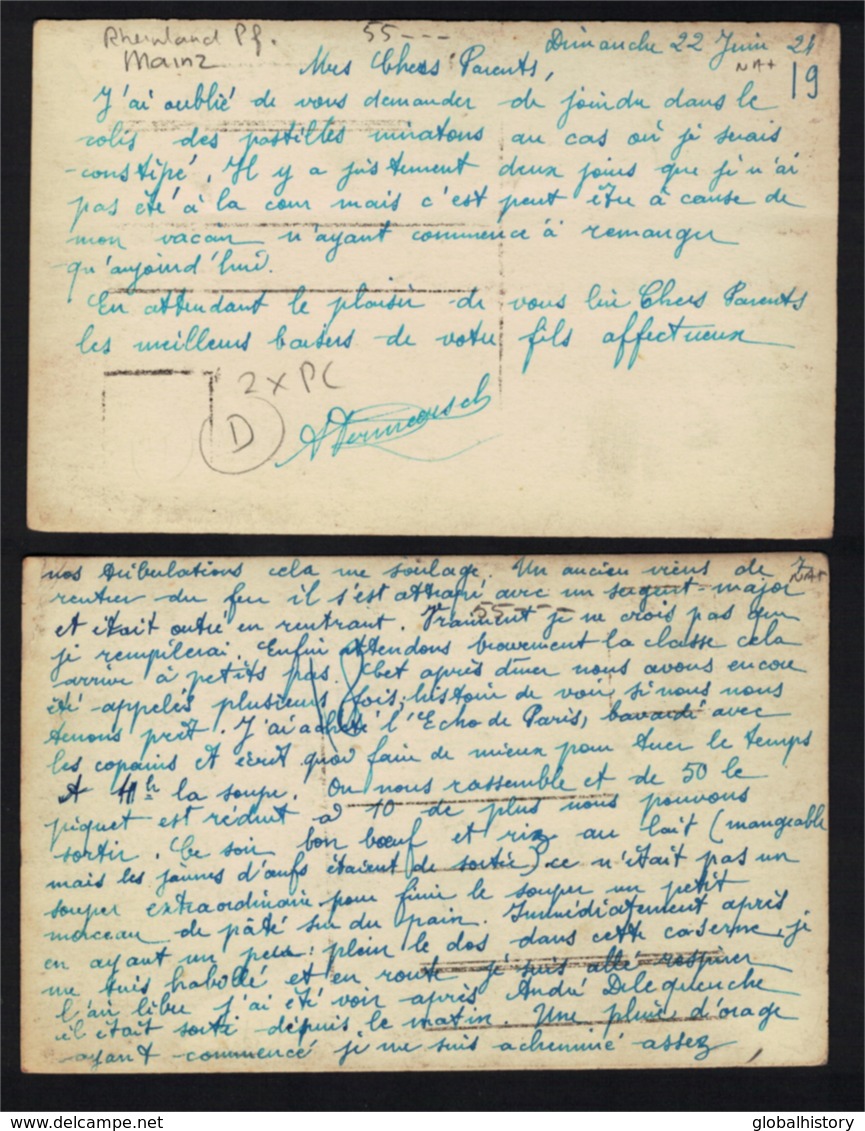 Rheinland Pf.
Mainz
55---
Dimanche 22 Juin 21
NA+
19
Mes Chers Parents,
J'ai oublié de vous demander de joindre dans le
colis des pastilles miratons au cas où je serais
constipé. Il y a justement deux jours que je n'ai
pas été à la cour mais c'est peut être à cause de
mon vaccin n'ayant commencé à remanger
qu'aujourd'hui.
En attendant le plaisir de vous lire Chers Parents
les meilleurs baisers de votre fils affectueux
2 x PC
D
nos tribulations cela me soulage. Un ancien viens de
NA+
rentrer du feu il s'est attrapé avec un sergent-major
55---
et était outré en rentrant. Vraiment je ne crois pas que
je rempilerai. Enfin attendons bravement la classe cela
arrive à petits pas. Cet après dîner nous avons encore
été appelés plusieurs fois, histoire de voir si nous nous
tenons prêt. J'ai acheté l'Echo de Paris, bavardé avec
les copains et écrit quoi faire de mieux pour tuer le temps
A 4h la soupe. On nous rassemble et de 50 le
piquet est réduit à 10 de plus nous pouvons
sortir. Ce soir bon bœuf et riz au lait (mangeable
mais les jaunes d'œufs étaient de sortie) ce n'était pas un
souper extraordinaire pour finir le souper un petit
morceau de pâté sur du pain. Immédiatement après
en ayant un peu plein le dos dans cette caserne, je
me suis habillé et en route je suis allé respirer
l'air libre j'ai été voir après André Delequenche
il était sorti depuis le matin. Une pluie d'orage
ayant commencé je me suis acheminé assez
globalhistory